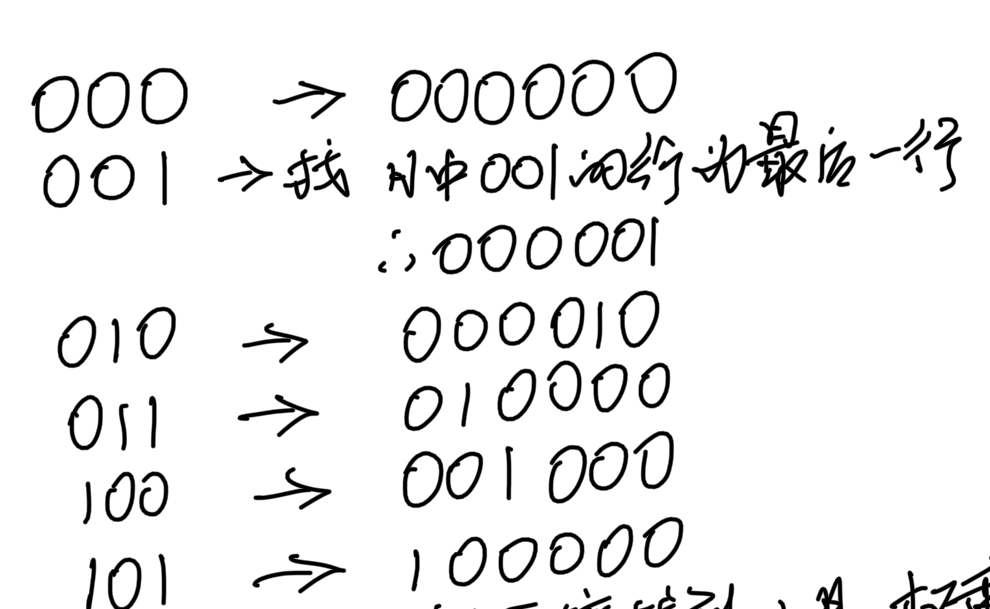 000 → 000000
001 → 找 H中001的行为最后一行
∴000001
010 → 000010
011 → 010000
100 → 001000
101 → 100000